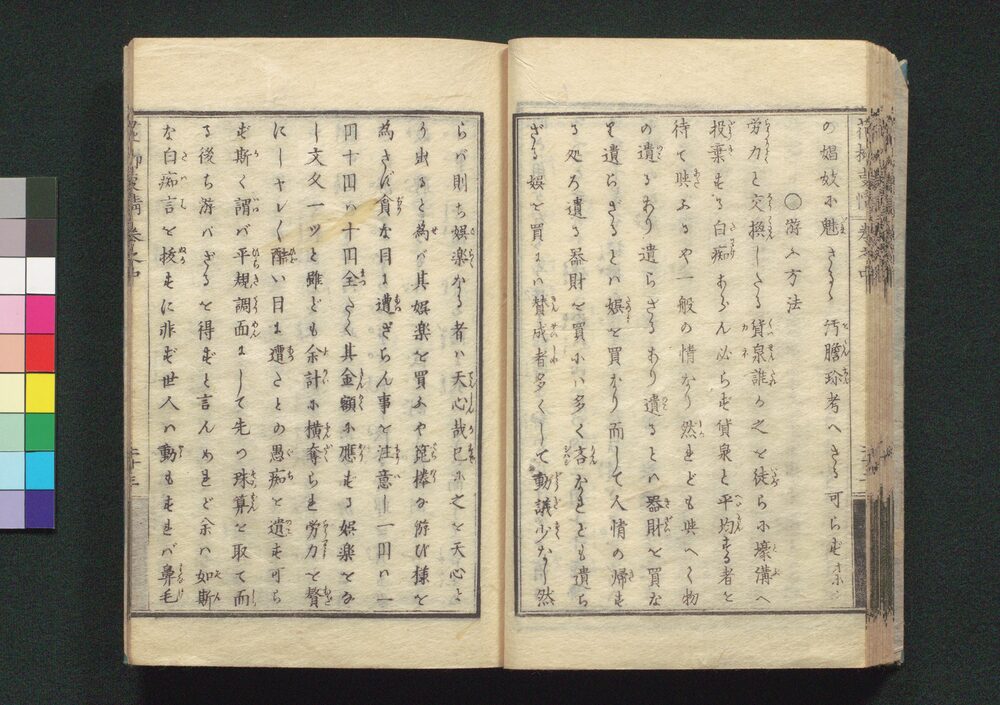 の娼妓に魅さるゝ汚膽[...]考へざる可らず
○游ふ方法
労力と交換したる貨泉誰か之を徒らに壕溝へ
投棄する白痴あらん必らず貨泉と平均する者を
待て與ふるや一般の情なり然れども與へく物
の遺るあり遺らざるあり遺るとハ器財を買な
り遺らざるとハ娯を買なり而して人情の帰す
る処ろ遺る器財を買にハ多く吝なれとも遺ら
ざる娯を買まハ賛成者多くして動議少なし然
らバ則ち娯楽なる者ハ天心哉已に之を天心と
り出ると為バ其娯楽を買ふや箆棒な游び様を
為さば貪な目に遭ざらん事を注意し一円ハ一
円十円ハ十円全たく其金額に應ずる娯楽をな
し文久一ツと雖ども余計に横奪られ労力を贅
にしヤレ〳〵酷い目に遭たとの愚痴を遺す可ら
ず斯く謂バ平規調面にして先つ珠算を取て而
る後ち游バざるを得ずと言んめれど余ハ如斯
な白痴言を拔すに非ず世人ハ動もすれバ鼻毛